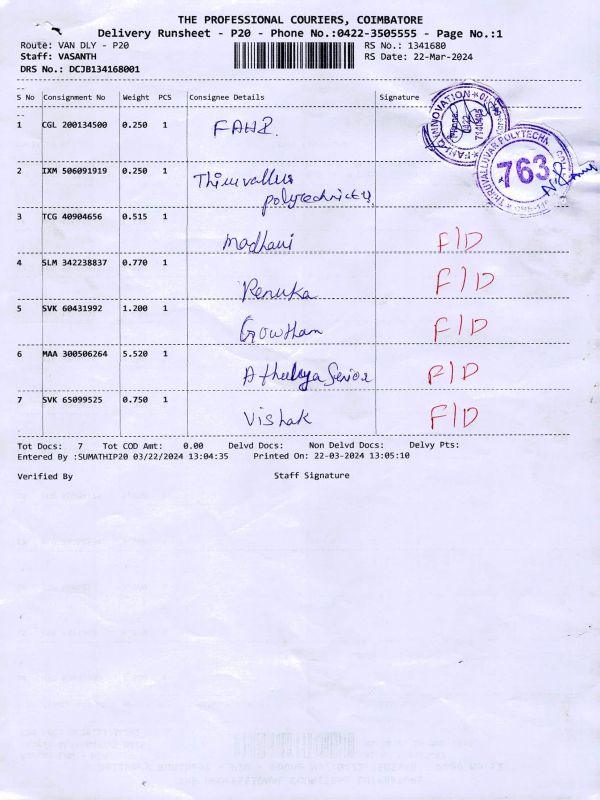 THE PROFESSIONAL COURIERS, COIMBATORE
Delivery Runsheet - P20 - Phone No.:0422-3505555 - Page No.:1
Route: VAN DLY - P20 RS No.: 1341680
Staff: VASANTH RS Date: 22-Mar-2024
DRS No.: DCJB134168001
S No Consignment No Weight PCS Consignee Details Signature
1 CGL 200134500 0.250 1
2 IXM 506091919 0.250 1 Thiruvalluv
polytechnic
3 TCG 40904656 0.515 1 Madhavi F/D
4 SLM 342238837 0.770 1 Renuka F/D
5 SVK 60431992 1.200 1 Gowtham F/D
6 MAA 300506264 5.520 1 F/D
7 SVK 65099525 0.750 1 Vishak F/D
THIRUVALLUVAR POLYTECHN
763
Tot Docs: 7 Tot COD Amt: 0.00 Delvd Docs: Non Delvd Docs: Delvy Pts:
Entered By :SUMATHIP20 03/22/2024 13:04:35 Printed On: 22-03-2024 13:05:10
Verified By Staff Signature